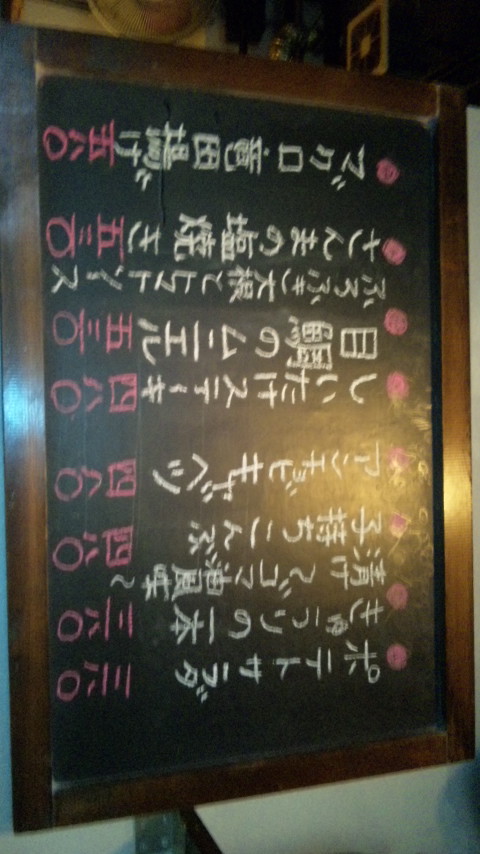 ポテトサラダ 三八〇
きゅうりの一本 三八〇
漬け〜ゴマ油風味〜
子持ちこんぶ 四八〇
アンチョビキャベツ 四八〇
しいたけステーキ 四八〇
目鯛のムニエル 五三〇
ふろふき大根とトマトソース
さんまの塩焼き 五三〇
マグロ竜田揚げ 五八〇